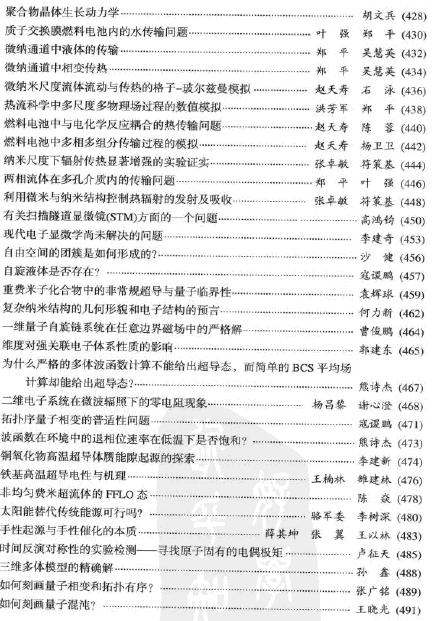 聚合物晶体生长动力学 胡文兵 (428)
质子交换膜燃料电池内的水传输问题 叶强 郑平 (430)
微纳通道中液体的传输 郑平 吴慧英 (432)
微纳通道中相变传热 郑平 吴慧英 (434)
微纳米尺度流体流动与传热的格子-玻尔兹曼模拟 赵天寿 石泳 (436)
热流科学中多尺度多物理场过程的数值模拟 洪芳军 郑平 (438)
燃料电池中与电化学反应耦合的热传输问题 赵天寿 陈蓉 (440)
燃料电池中多相多组分传输过程的模拟 赵天寿 杨卫卫 (442)
纳米尺度下辐射传热显著增强的实验证实 张卓敏 符策基 (444)
两相流体在多孔介质内的传输问题 郑平 叶强 (446)
利用微米与纳米结构控制热辐射的发射及吸收 张卓敏 符策基 (448)
有关扫描隧道显微镜(STM)方面的一个问题 高鸿钧 (450)
现代电子显微学尚未解决的问题 李建奇 (453)
自由空间的团簇是如何形成的? 沙健 (456)
自旋液体是否存在? 寇谡鹏 (457)
重费米子化合物中的非常规超导与量子临界性 袁辉球 (459)
复杂纳米结构的几何形貌和电子结构的预言 何力新 (462)
一维量子自旋链系统在任意边界磁场中的严格解 曹俊鹏 (464)
维度对强关联电子体系性质的影响 郭建东 (465)
为什么严格的多体波函数计算不能给出超导态，而简单的 BCS 平均场
计算却能给出超导态? 熊诗杰 (467)
二维电子系统在微波辐照下的零电阻现象 杨昌黎 谢心澄 (468)
拓扑序量子相变的普适性问题 寇谡鹏 (471)
波函数在环境中的退相位速率在低温下是否饱和? 熊诗杰 (473)
铜氧化物高温超导体赝能隙起源的探索 李建新 (474)
铁基高温超导电性与机理 王楠林 雒建林 (476)
非均匀费米超流体的 FFLO 态 陈焱 (478)
太阳能替代传统能源可行吗? 骆军委 李树深 (480)
手性起源与手性催化的本质 薛其坤 张翼 王以林 (483)
时间反演对称性的实验检测——寻找原子固有的电偶极矩 卢征天 (485)
三维多体模型的精确解 孙鑫 (488)
如何刻画量子相变和拓扑有序? 张广铭 (489)
如何刻画量子混沌? 王晓光 (491)